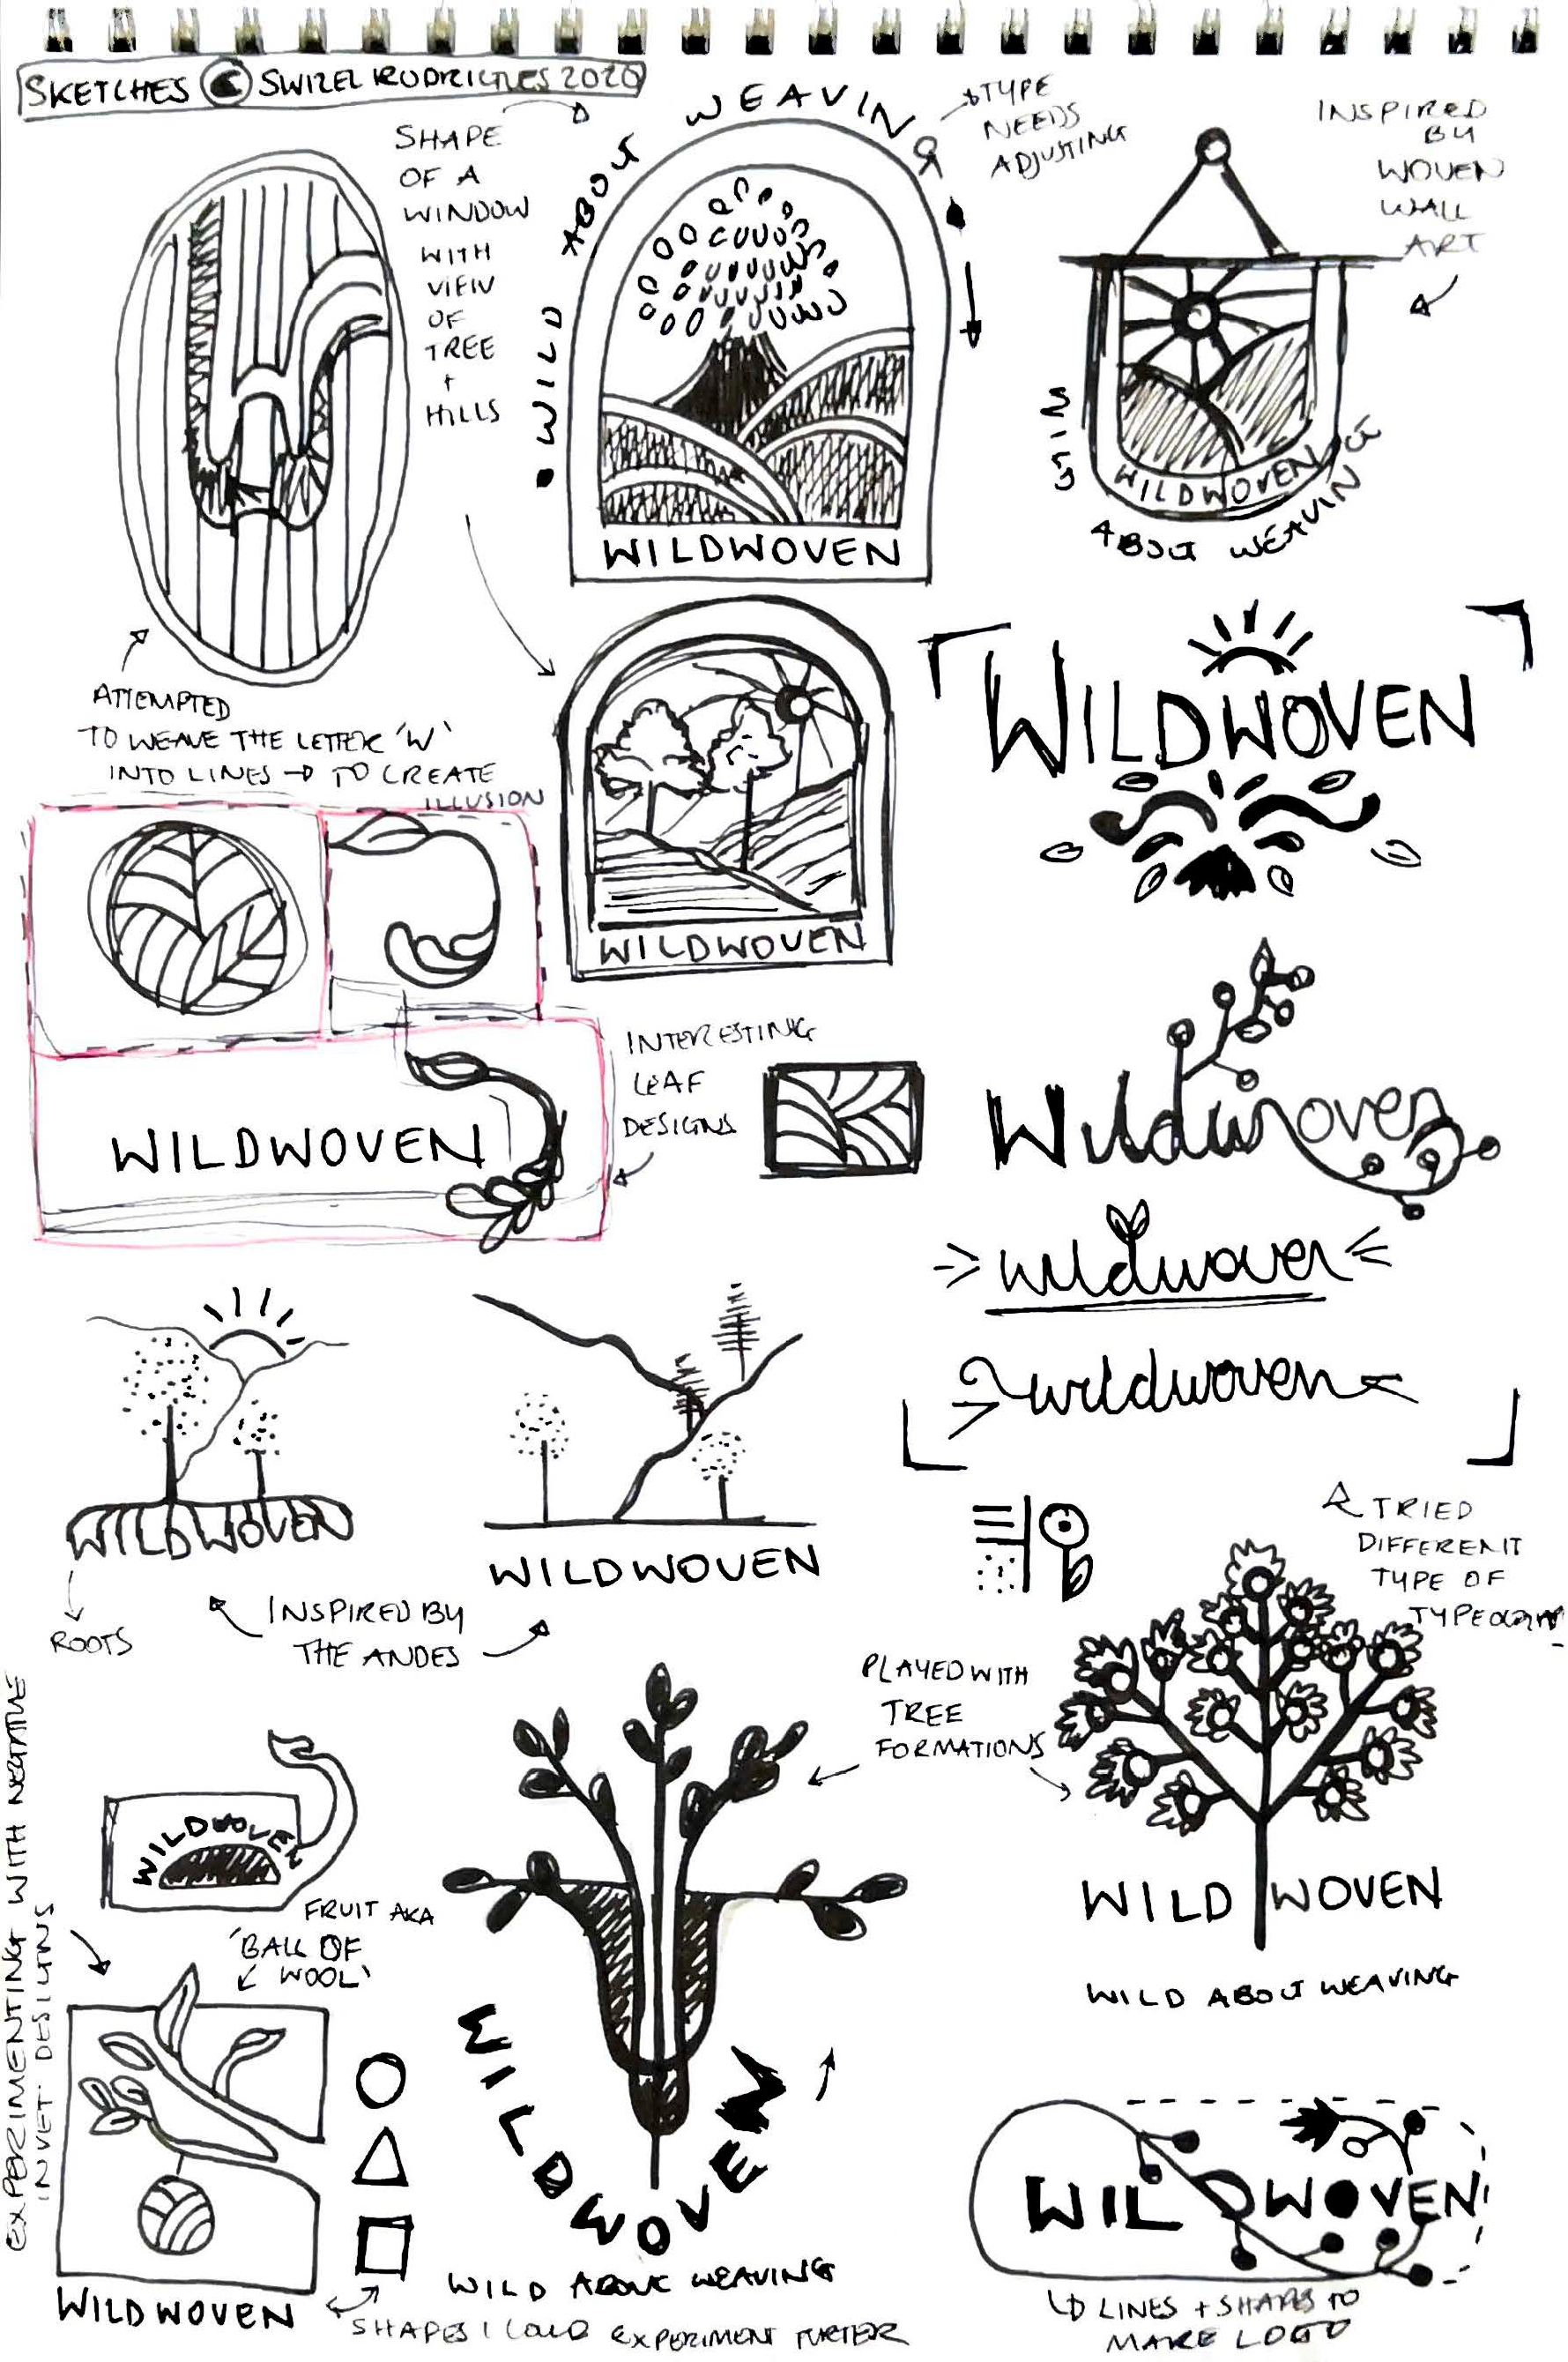 SKETCHES © SWIZEL RODRIGUES 2020
SHAPE
OF A
WINDOW
WITH
VIEW
OF
TREE
+
HILLS
• WILD ABOUT WEAVING •
TYPE
NEEDS
ADJUSTING
WILDWOVEN
INSPIRED
BY
WOVEN
WALL
ART
WILDWOVEN
ABOUT WEAVIN
ATTEMPTED
TO WEAVE THE LETTER 'W'
INTO LINES → TO CREATE
ILLUSION
WILDWOVEN
WILDWOVEN
INTERESTING
LEAF
DESIGNS
WILDWOVEN
Wildwoven
wildwoven
wildwoven
TRIED
DIFFERENT
TYPE OF
WILDWOVEN
ROOTS
WILDWOVEN
INSPIRED BY
THE ANDES
PLAYED WITH
TREE
FORMATIONS
WILD WOVEN
WILD ABOUT WEAVING
EXPERIMENTING WITH NEGATIVE
INVET. DESIGNS
WILDWOVEN
FRUIT AKA
'BALL OF
WOOL'
WILDWOVEN
WILDWOVEN
WILD ABOUT WEAVING
SHAPES I COULD EXPERIMENT FURTHER
WILDWOVEN
LINES + SHAPES TO
MAKE LOGO